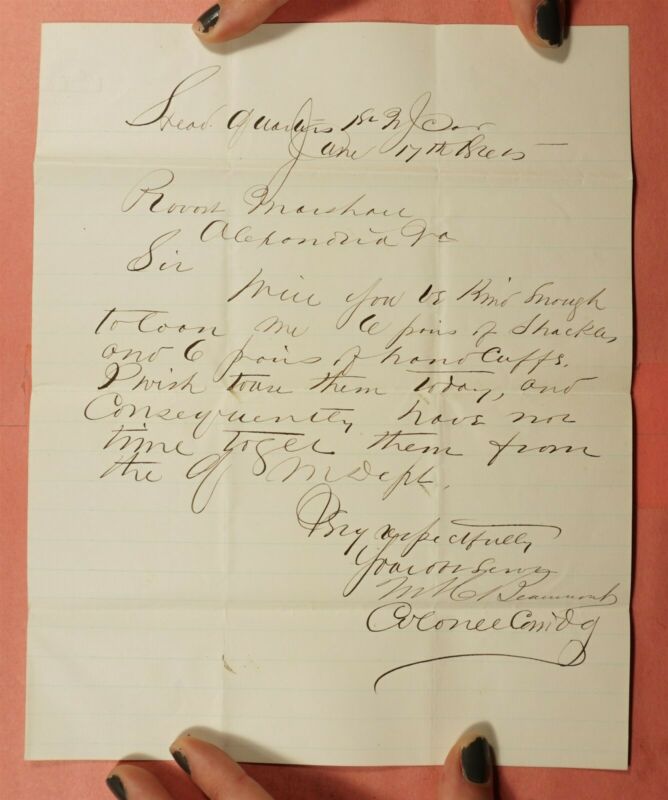 Head Quarters 1st N J Cav
June 17th 1865
Provost Marshall
Alexandria Va
Sir
Will you be Kind Enough
to loan me 6 pairs of Shackles
and 6 pairs of hand Cuffs.
I wish to use them today, and
Consequently have not
time to get them from
the Q M Dept.
Very respectfully
Your obt Servt
M H Beaumont
Colonel Comdg